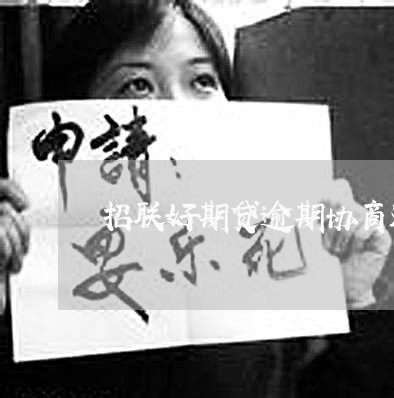 申請：
招联好期贷逾期协商
安乐死